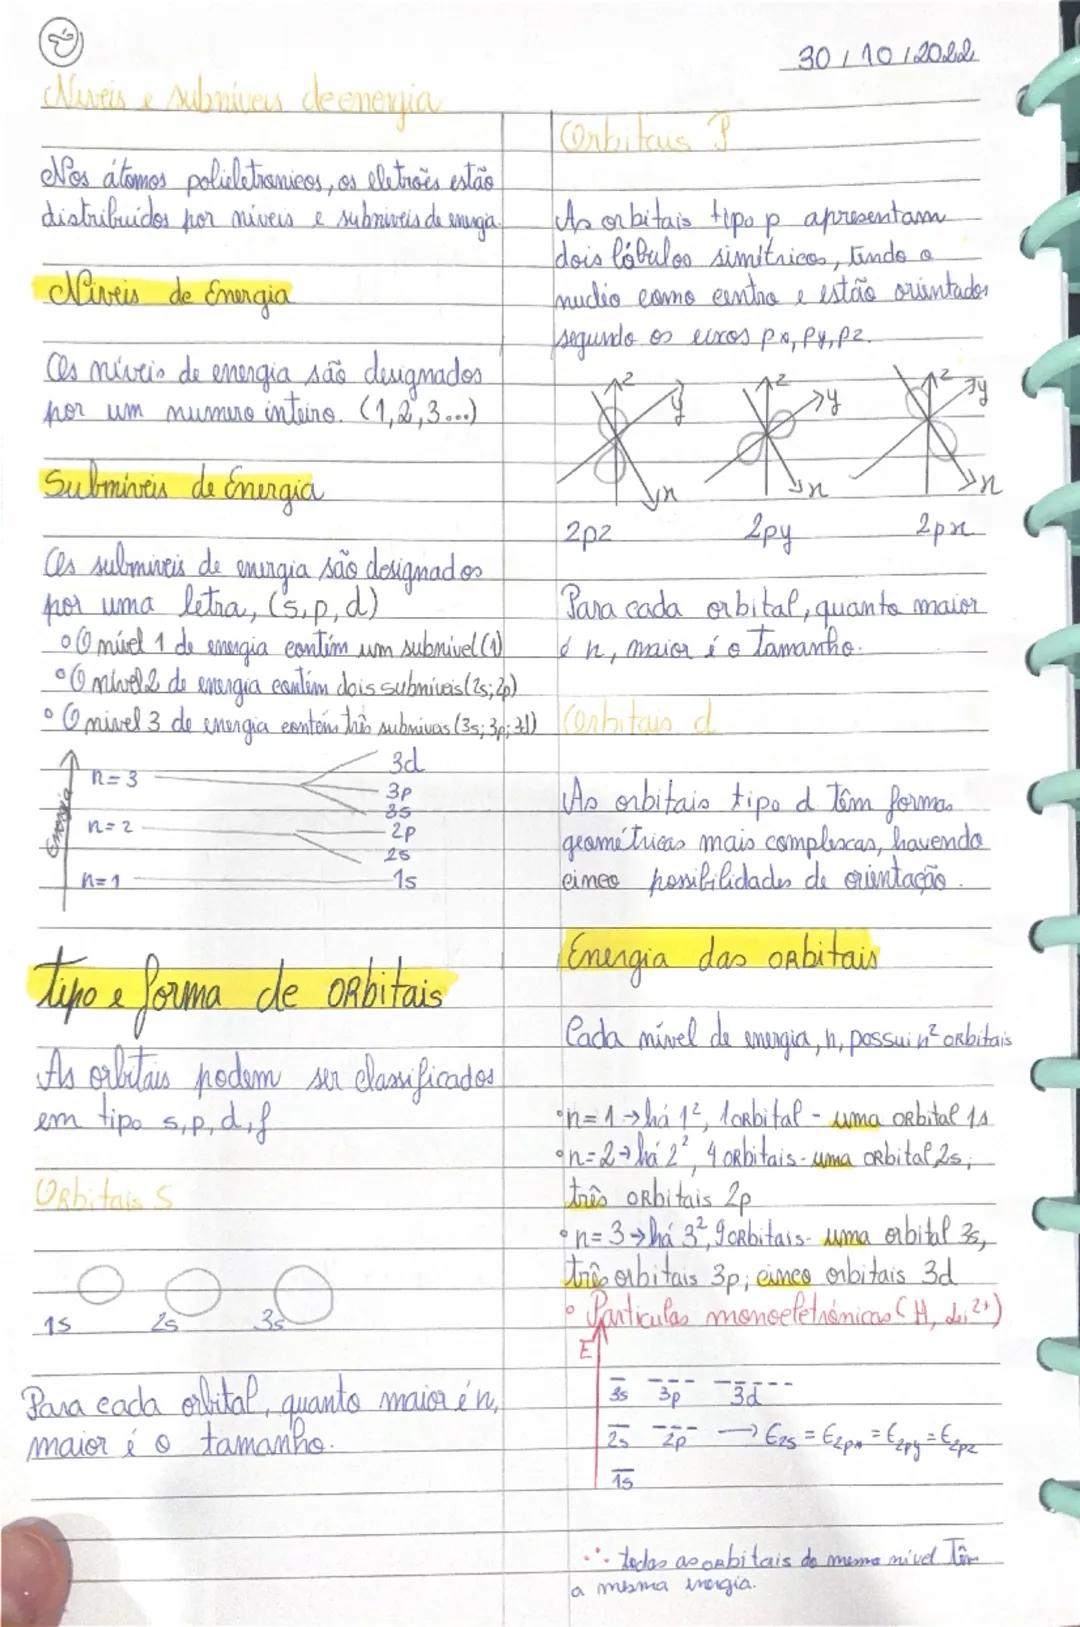 30/10/2022
Níveis e subníveis de energia
Nos átomos polieletronicos, os eletrões estão
distribuídos por níveis e subníveis de energia.
Níveis de Energia
Os níveis de energia são designados
por um numero inteiro. (1,2,3...)
Subníveis de Energia
Os subníveis de energia são designados
por uma letra, (s, p, d)
• O nível 1 de energia contém um subnível (1)
• O nível 2 de energia contém dois subníveis (2s; 2p)
• O nível 3 de energia contém três subníveis (3s; 3p; 3d)
Energia
n=3
3d
3p
3s
n=2
2p
2s
n=1
1s
tipo e forma de orbitais
As orbitais podem ser classificados
em tipo s, p, d, f
Orbitais S
1s 2s 3s
Para cada orbital, quanto maior é n,
maior é o tamanho.
Orbitais P
As orbitais tipo p apresentam
dois lóbulos simétricos, tendo o
nucléo como centro e estão orientados
segundo os eixos px, py, pz.
z y x
z y x
z y x
2pz 2py 2px
Para cada orbital, quanto maior
é n, maior é o tamanho.
Orbitais d
As orbitais tipo d têm formas
geométricas mais complexas, havendo
cinco possibilidades de orientação.
Energia das orbitais
Cada nível de energia, n, possui n² orbitais
• n=1 → há 1², 1 orbital - uma orbital 1s
• n=2 → há 2², 4 orbitais - uma orbital 2s,
três orbitais 2p
• n=3 → há 3², 9 orbitais - uma orbital 3s,
três orbitais 3p; cinco orbitais 3d
• Particulas monoeletrónicas (H, Li²⁺)
E
3s 3p 3d
2s 2p → E2s = E2px = E2py = E2pz
1s
∴ todas as orbitais do mesmo nível Têm
a mesma energia.